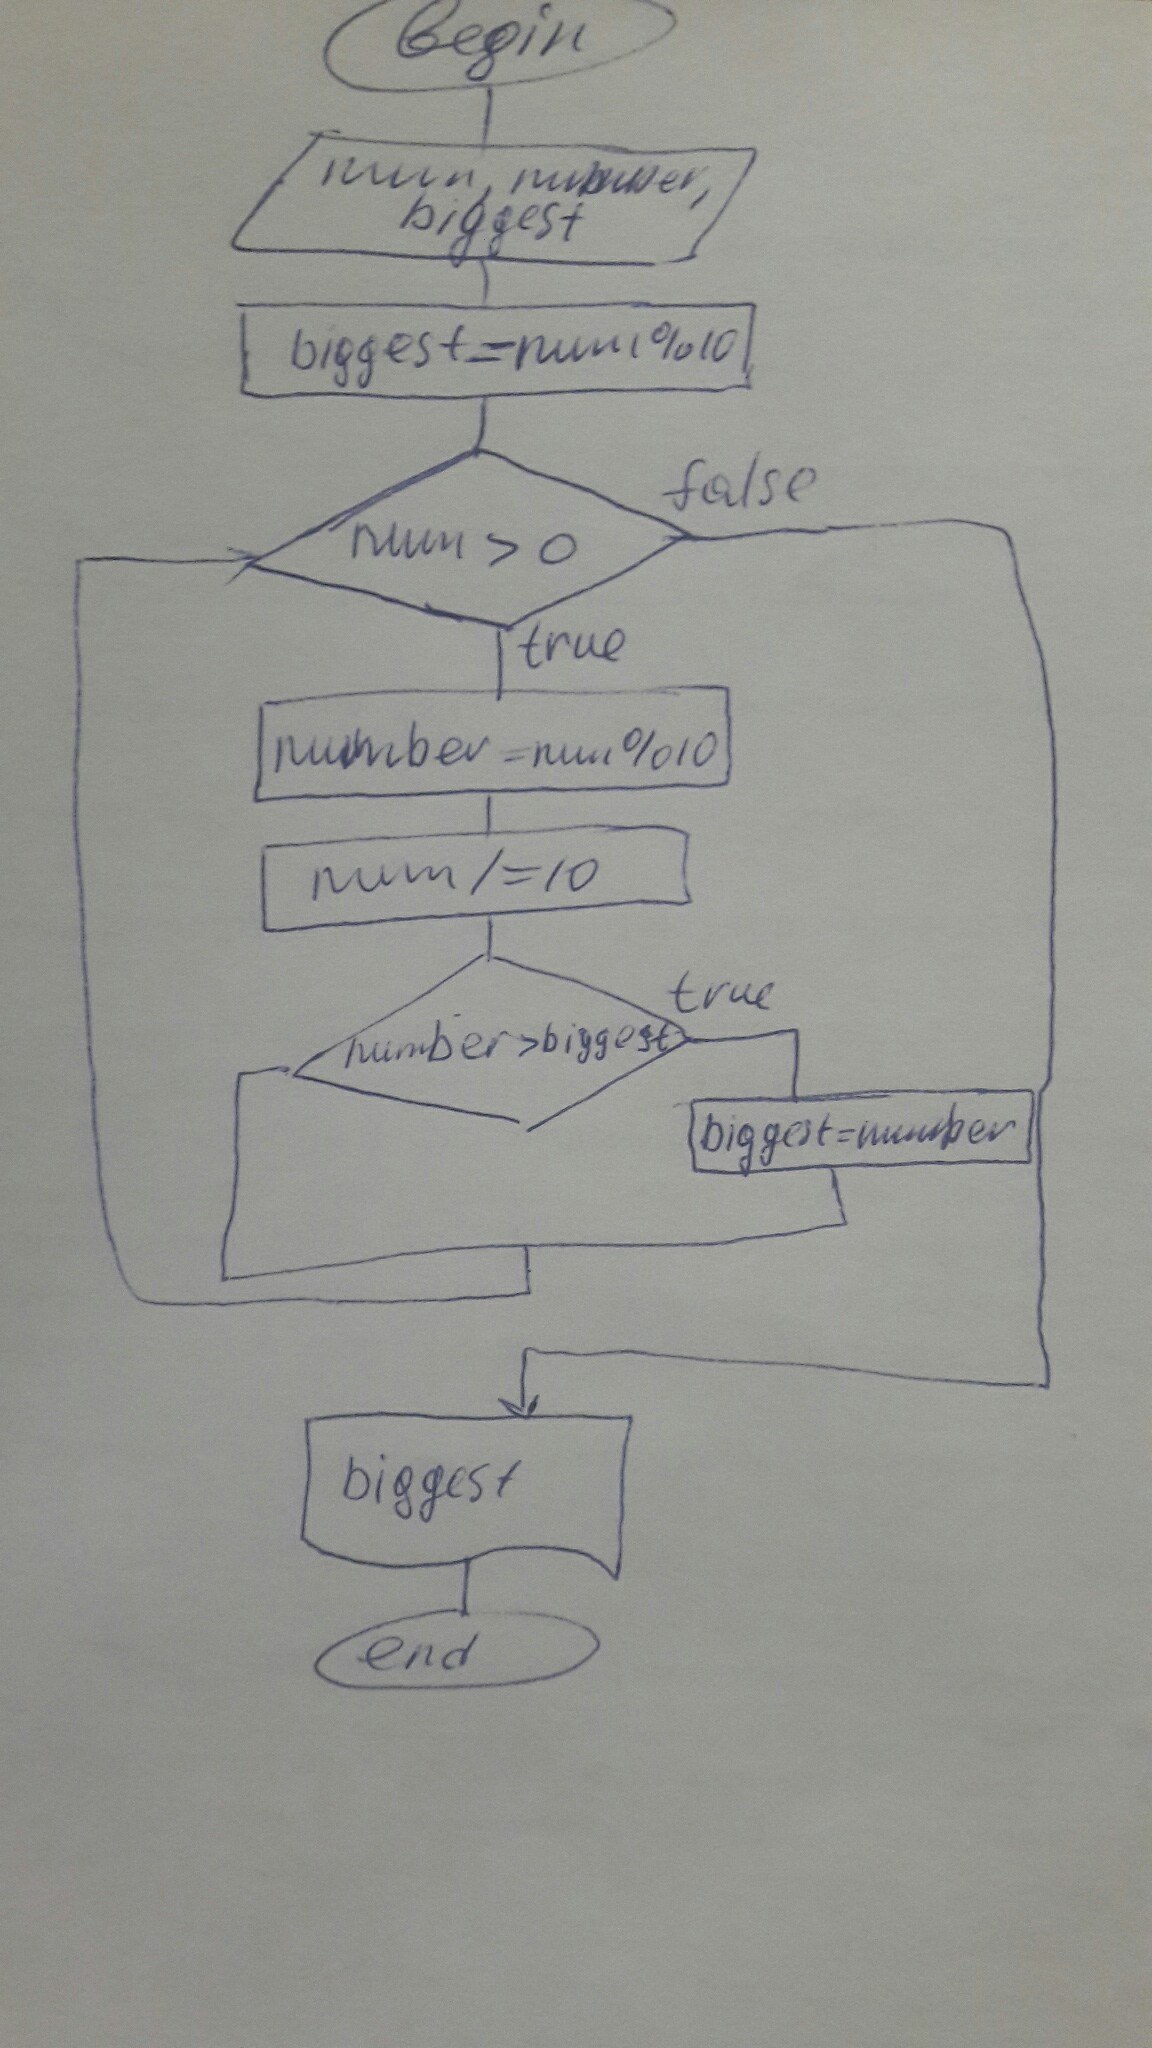 begin
num, number,
biggest
biggest=num%10
false
num > 0
true
number=num%10
num/=10
true
number>biggest
biggest=number
biggest
end